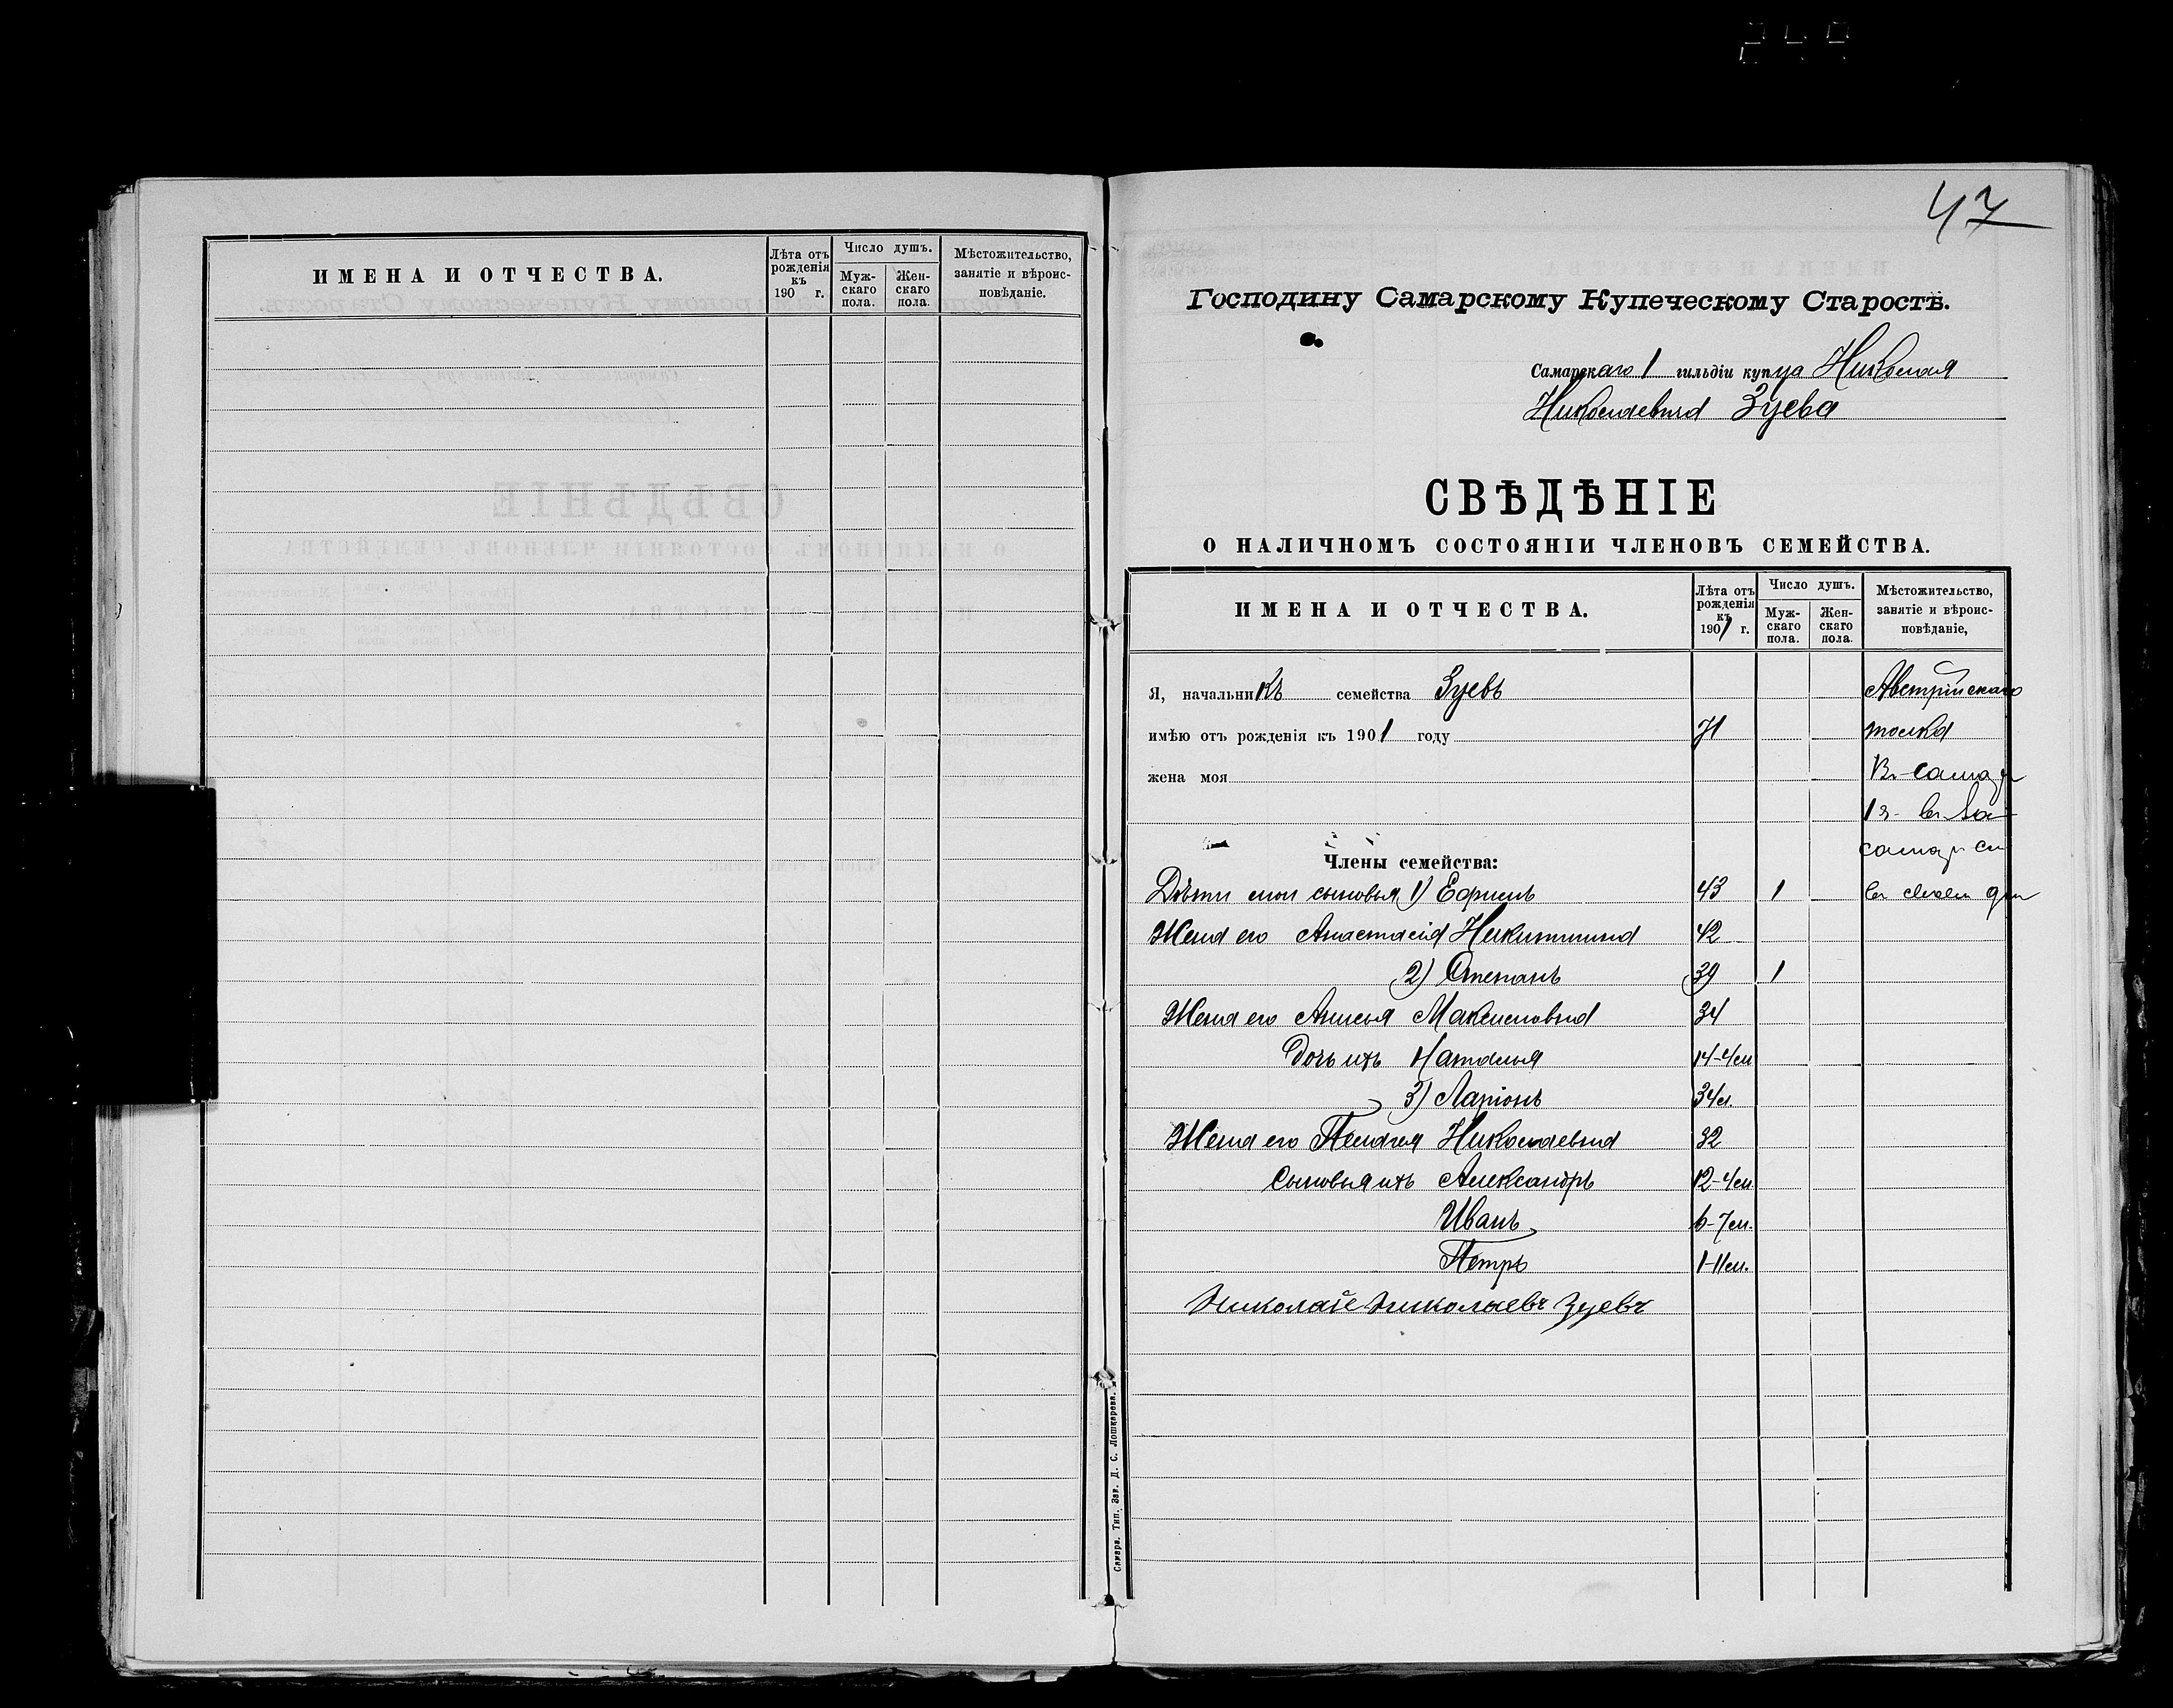 ИМЕНА И ОТЧЕСТВА.
Лѣта отъ рожденія къ 190 г.
Число душъ.
Мужскаго пола.
Женскаго пола.
Мѣстожительство, занятіе и вѣроисповѣданіе.
47
Господину Самарскому Купеческому Старостѣ.
Самарскаго 1 гильдіи купца Николая
Николаевича Зуева
СВѢДѢНІЕ
О НАЛИЧНОМЪ СОСТОЯНІИ ЧЛЕНОВЪ СЕМЕЙСТВА.
ИМЕНА И ОТЧЕСТВА.
Лѣта отъ рожденія къ 1901 г.
Число душъ.
Мужскаго пола.
Женскаго пола.
Мѣстожительство, занятіе и вѣроисповѣданіе,
Я, начальникъ семейства Зуевъ Австрійскаго
имѣю отъ рожденія къ 1901 году 71 толка
жена моя
Члены семейства:
Дѣти мои сыновья 1) Ефимъ 43 1
Жена его Анастасія Никитина 42
2) Степанъ 39 1
Жена его Анисья Максимовна 34
Дочь ихъ Наталья 14-4м
3) Ларіонъ 34
Жена его Пелагея Николаевна 32
Сыновья ихъ Александръ 12-4м
Иванъ 6-7м.
Петръ 1-11м.
Николай Николаевъ Зуевъ
Самара. Тип. Зав. Д. С. Лошкарева.